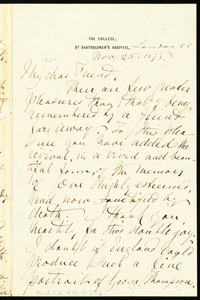 THE COLLEGE,
ST BARTHOLOMEW'S HOSPITAL,
London EC
Nov. 25. 1878.
My dear Friend,
There are few greater
pleasures than that of being
remembered by a friend
far away; to this plea-
sure you have added the
revival, in a vivid and beau-
tiful form, of the memory
of one highly esteemed,
and now sanctified by
death. I thank you
heartily for this double joy.
I doubt if England could
produce such a fine
portrait of George Thompson,